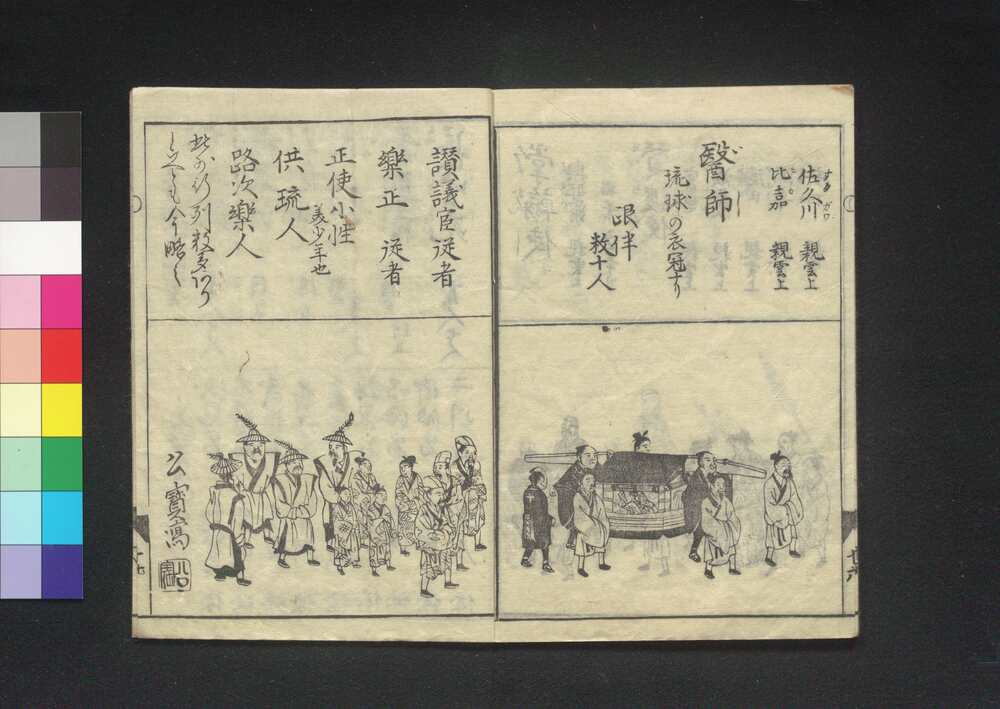 佐久川 親雲上
比嘉 親雲上
醫師
琉球の衣冠なり
跟伴
数十人
讃議臣従者
樂正 従者
正使小性
美少年也
供琉人
路次樂人
此外行列数多あり
といへども今略之
公寶寫